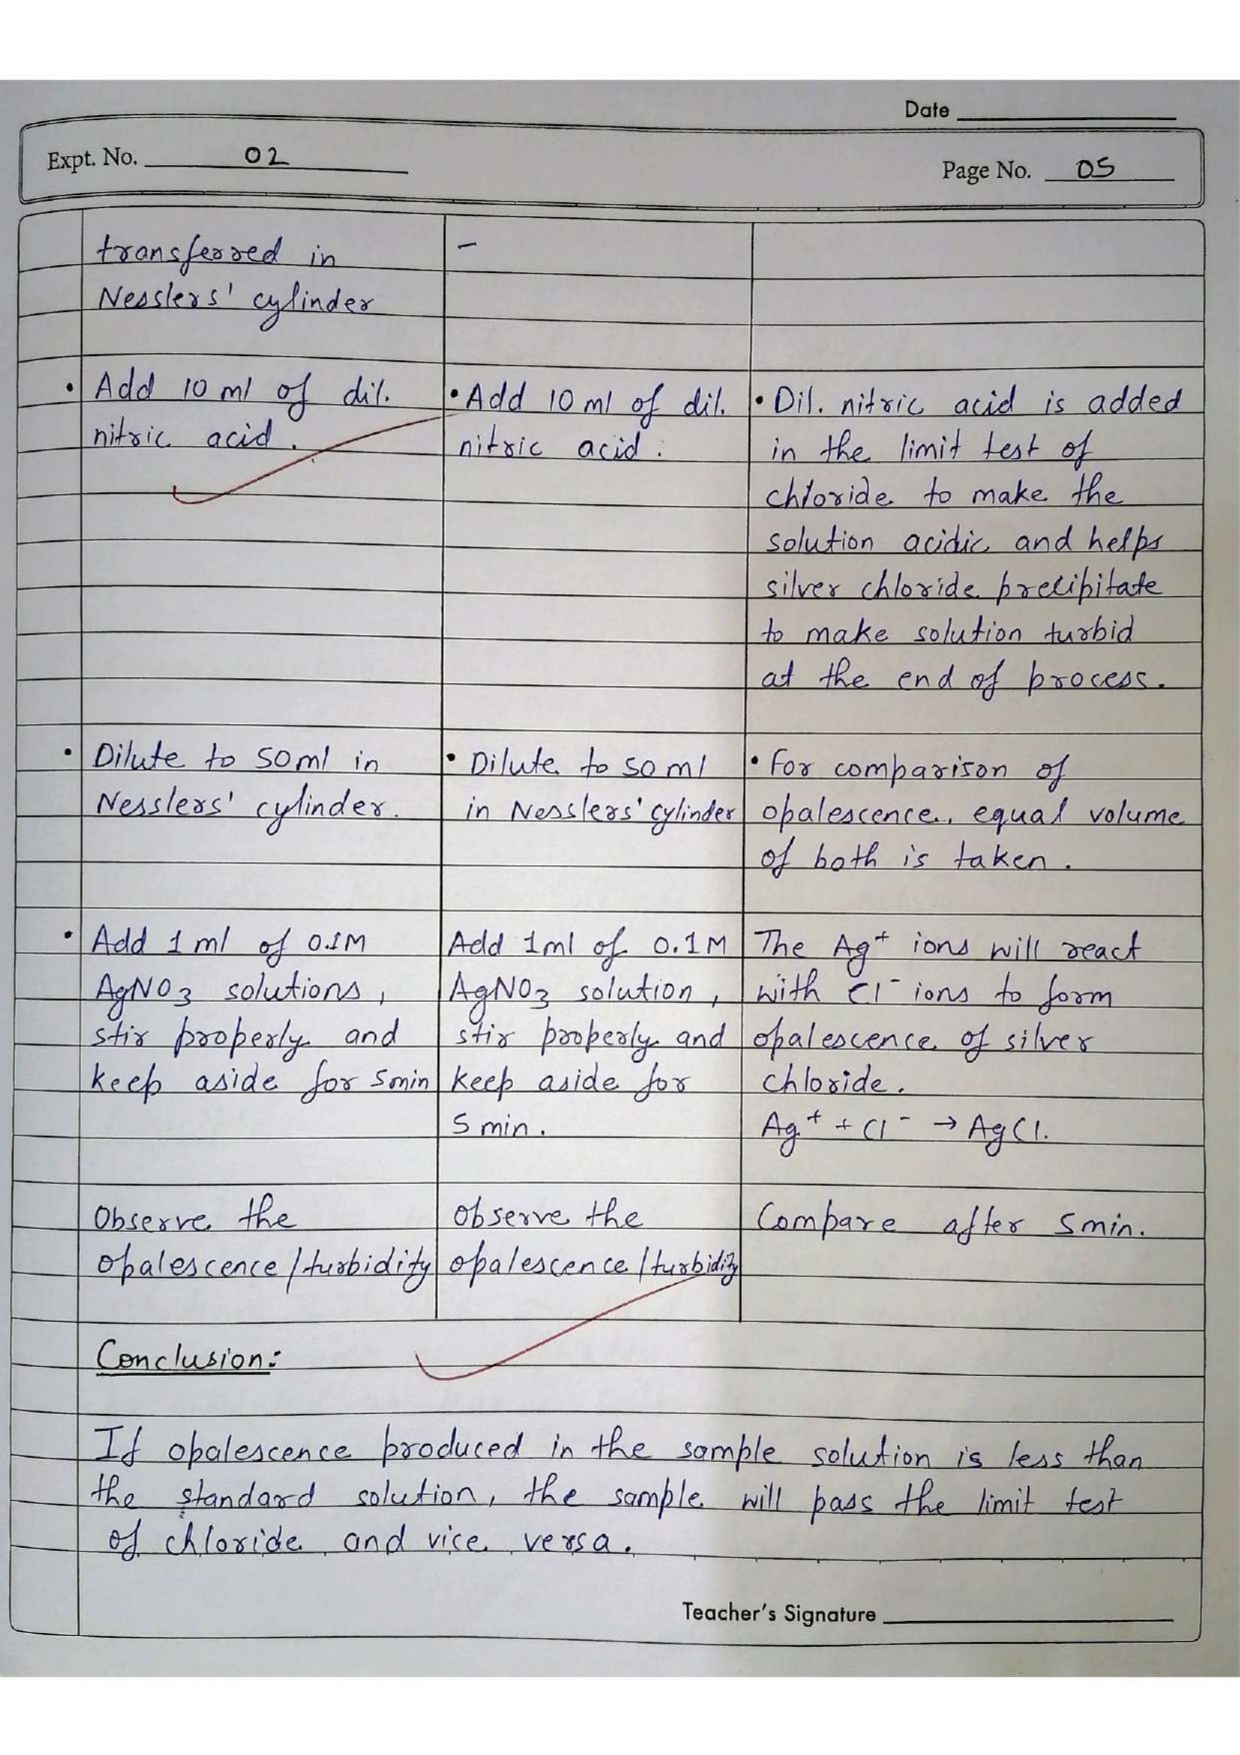 Date
Expt. No. 02
Page No. 05
transferred in
Nesslers' cylinder
-
• Add 10 ml of dil.
nitric acid.
• Add 10 ml of dil.
nitric acid.
• Dil. nitric acid is added
in the limit test of
chloride to make the
solution acidic and helps
silver chloride precipitate
to make solution turbid
at the end of process.
• Dilute to 50ml in
Nesslers' cylinder.
• Dilute to 50 ml
in Nesslers' cylinder
• For comparison of
opalescence, equal volume
of both is taken.
• Add 1 ml of 0.1M
AgNO3 solutions,
stir properly and
keep aside for 5min
Add 1ml of 0.1M
AgNO3 solution,
stir properly and
keep aside for
5 min.
The Ag+ ions will react
with Cl- ions to form
opalescence of silver
chloride.
Ag+ + Cl- → AgCl.
Observe the
opalescence/turbidity
observe the
opalescence/turbidity
Compare after 5min.
Conclusion:
If opalescence produced in the sample solution is less than
the standard solution, the sample will pass the limit test
of chloride and vice versa.
Teacher's Signature